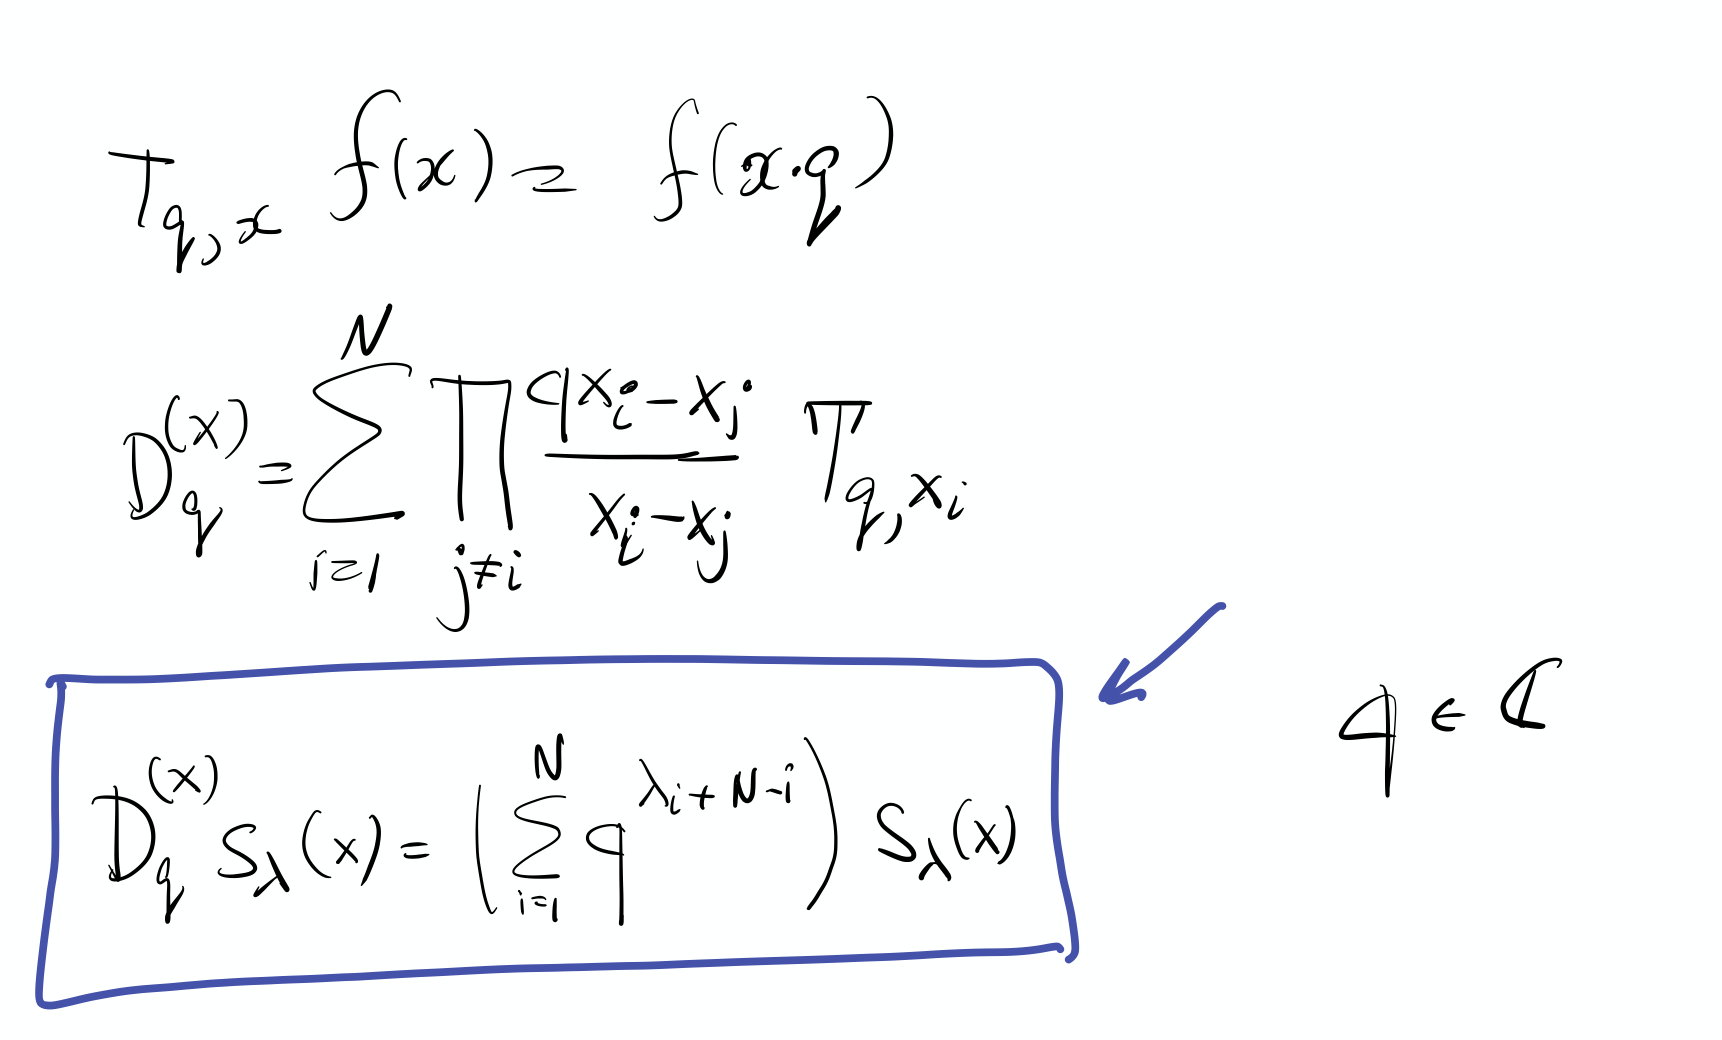 T_{q,x} f(x) = f(x·q)
D_q^{(x)} = \sum_{i=1}^{N} \prod_{j≠i} \frac{qx_i - x_j}{x_i - x_j} T_{q,x_i}
q ∈ ℂ
D_q^{(x)} S_λ(x) = (\sum_{i=1}^{N} q^{λ_i + N - i}) S_λ(x)